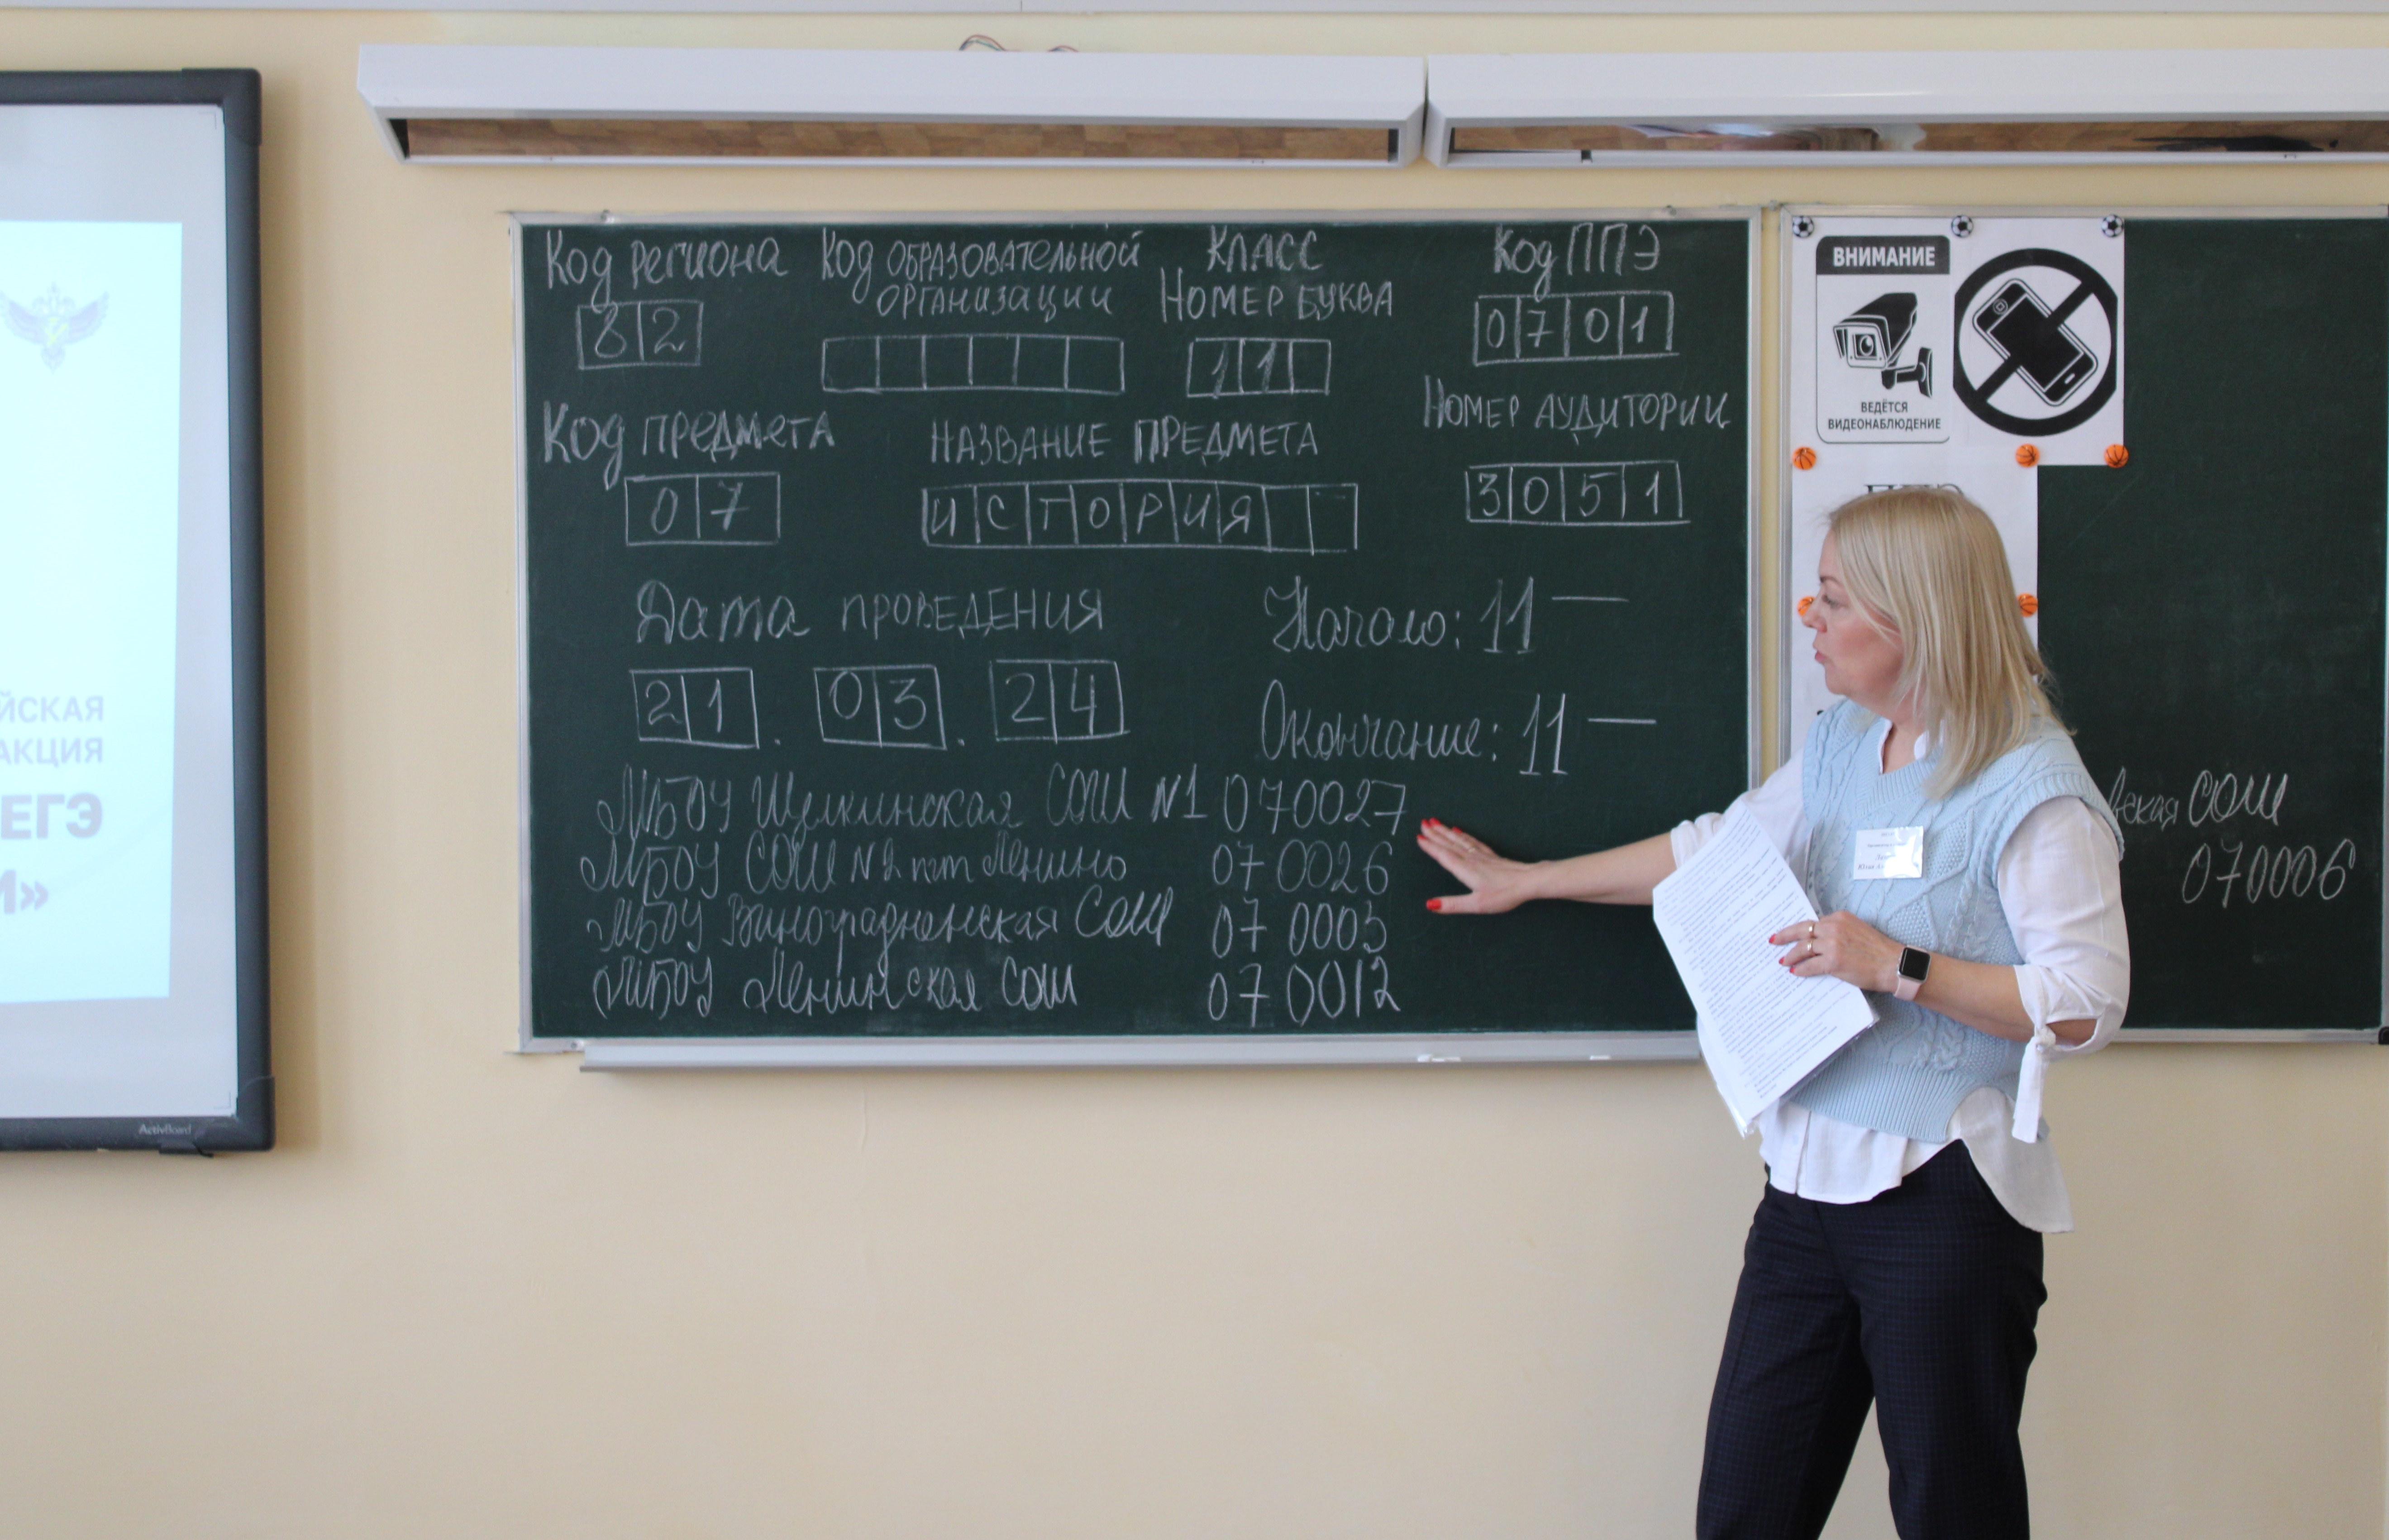 Код региона
82
Код образовательной
организации
Класс
Номер буква
11
Код ППЭ
0701
Код предмета
07
Название предмета
ИСТОРИЯ
Номер аудитории
3051
Дата проведения
21.03.24
Начало: 11 —
Окончание: 11 —
МБОУ Щелкинская СОШ №1 070027
МБОУ СОШ №2 пгт Ленино 070026
МБОУ Виноградненская СОШ 070003
МБОУ Ленинская СОШ 070012
вская СОШ
070006
ВНИМАНИЕ
ВЕДЁТСЯ
ВИДЕОНАБЛЮДЕНИЕ
ЙСКАЯ
АКЦИЯ
ЕГЭ
И»
ActivBoard